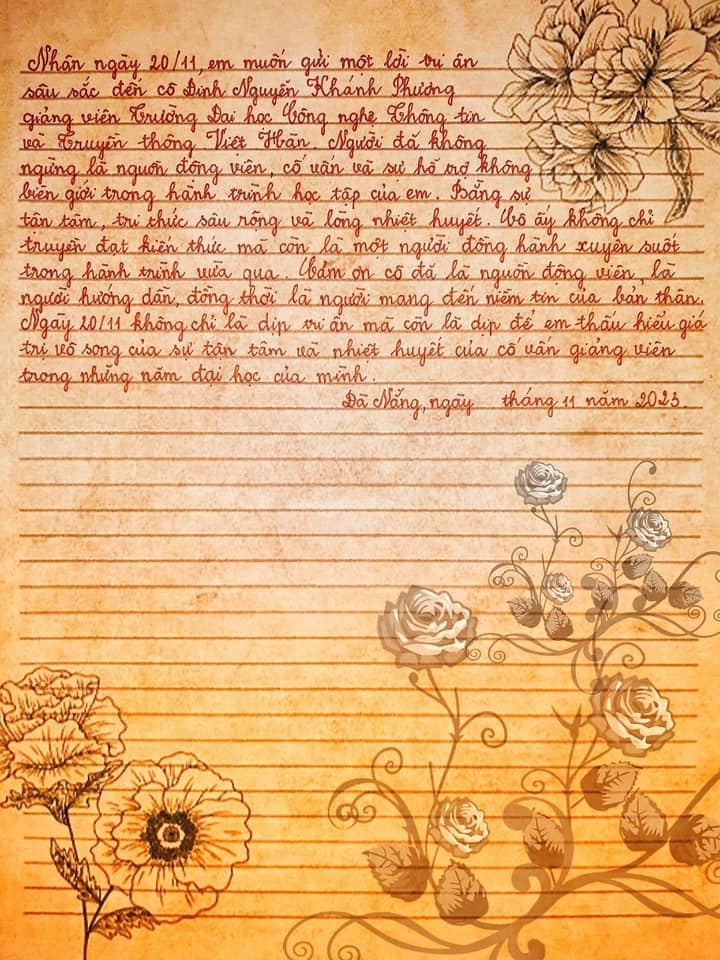 Nhân ngày 20/11, em muốn gửi một lời tri ân
sâu sắc đến cô Đinh Nguyễn Khánh Phương
giảng viên Trường Đại học Công nghệ Thông tin
và Truyền thông Việt Hàn. Người đã không
ngừng là nguồn động viên, cố vấn và sự hỗ trợ không
biên giới trong hành trình học tập của em. Bằng sự
tận tâm, tri thức sâu rộng và lòng nhiệt huyết. Cô ấy không chỉ
truyền đạt kiến thức mà còn là một người đồng hành xuyên suốt
trong hành trình vừa qua. Cảm ơn cô đã là nguồn động viên, là
người hướng dẫn, đồng thời là người mang đến niềm tin của bản thân.
Ngày 20/11 không chỉ là dịp tri ân mà còn là dịp để em thấu hiểu giá
trị vô song của sự tận tâm và nhiệt huyết của cố vấn giảng viên
trong những năm đại học của mình.
Đà Nẵng, ngày tháng 11 năm 2023.